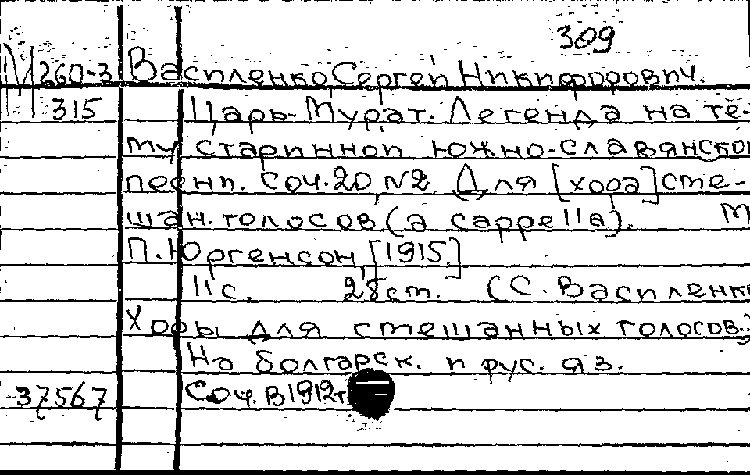 309
М 260-3 Василенко, Сергей Никифорович.
315 Царь-Мурат. Легенда на те-
му старинной южно-славянской
песни. Соч. 20, №2. Для [хора] сме-
шан. голосов (a cappella). М
П. Юргенсон, [1915]
11 с. 28 см. (С. Василенко
Хоры для смешанных голосов.
На болгарск. и рус. яз.
37567 Соч. в 1912 г.